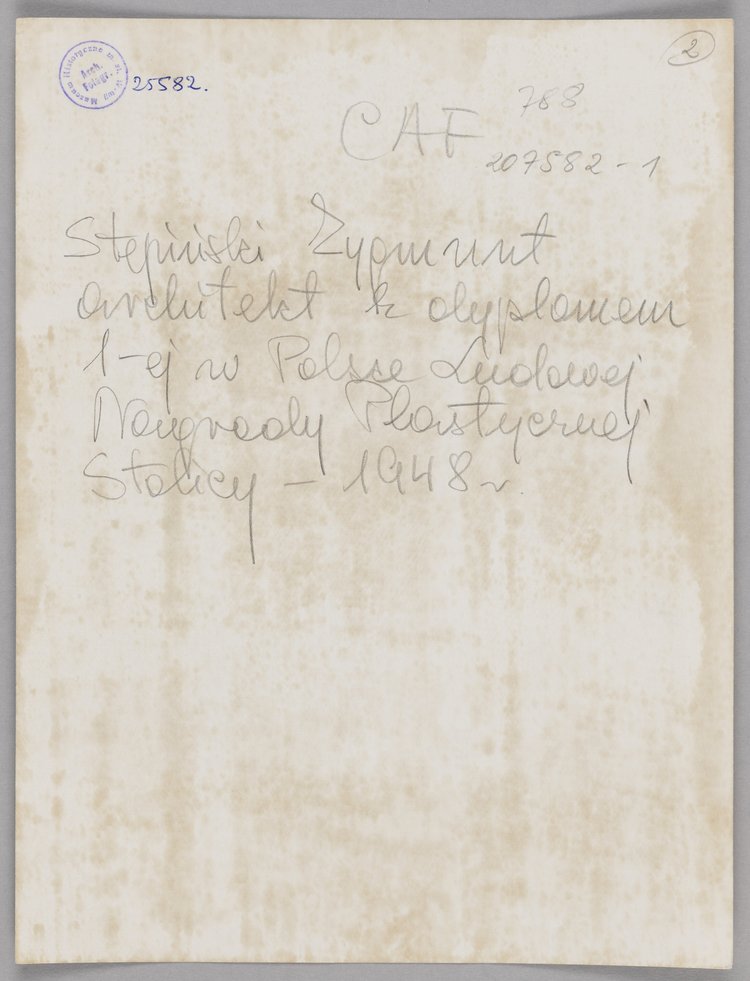 Muzeum Historyczne m. st. W-wy
Arch.
Fotogr.
25582.
2
CAF
788
207582-1
Stępiński Zygmunt
architekt z dyplomem
1-ej w Polsce Ludowej
Nagrody Plastycznej
Stolicy - 1948 r.